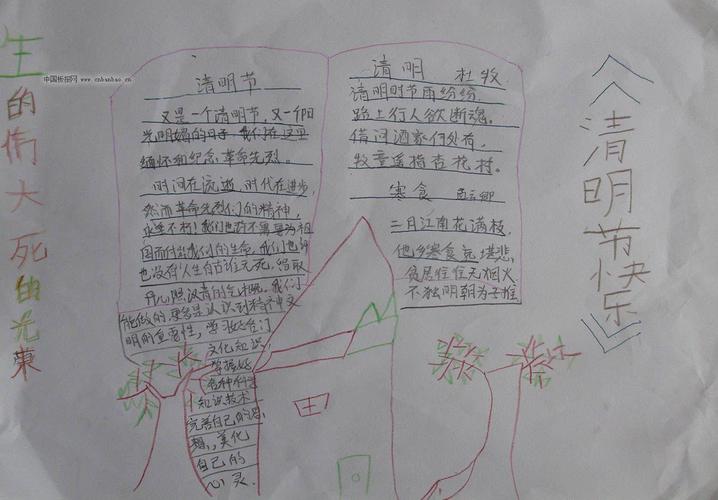 生的伟大死的光荣
中国板报网 www.cnbanbao.cn
清明节
又是一个清明节,又一个阳
光明媚的日子 我们在这里
缅怀和纪念革命先烈。
时间在流逝,时代在进步,
然而革命先烈们的精神,
永远不朽!我们也许不需要为祖
国而付出我们的生命,我们也许
也没有"人生自古谁无死,留取
丹心照汉青的气概。我们
能做的更多是认识到精神文
明的重要性,学习好
文化知识,
掌握好
各种科
知识技术,
完善自己的思
想,美化
自己的
心灵.
清明 杜牧
清明时节雨纷纷,
路上行人欲断魂。
借问酒家何处有,
牧童遥指杏花村。
寒食 孟云卿
二月江南花满枝,
他乡寒食远堪悲,
贫居往往无烟火
不独明朝为子推
《清明节快乐》